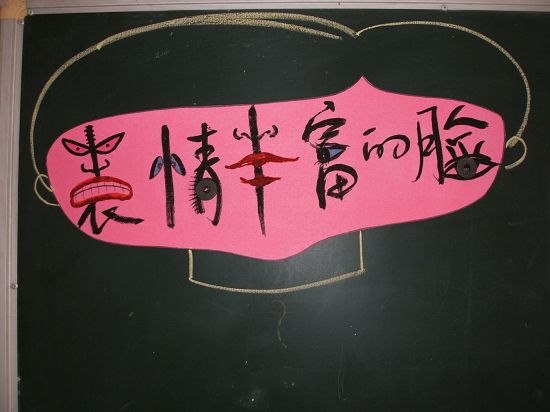 表情丰富的脸